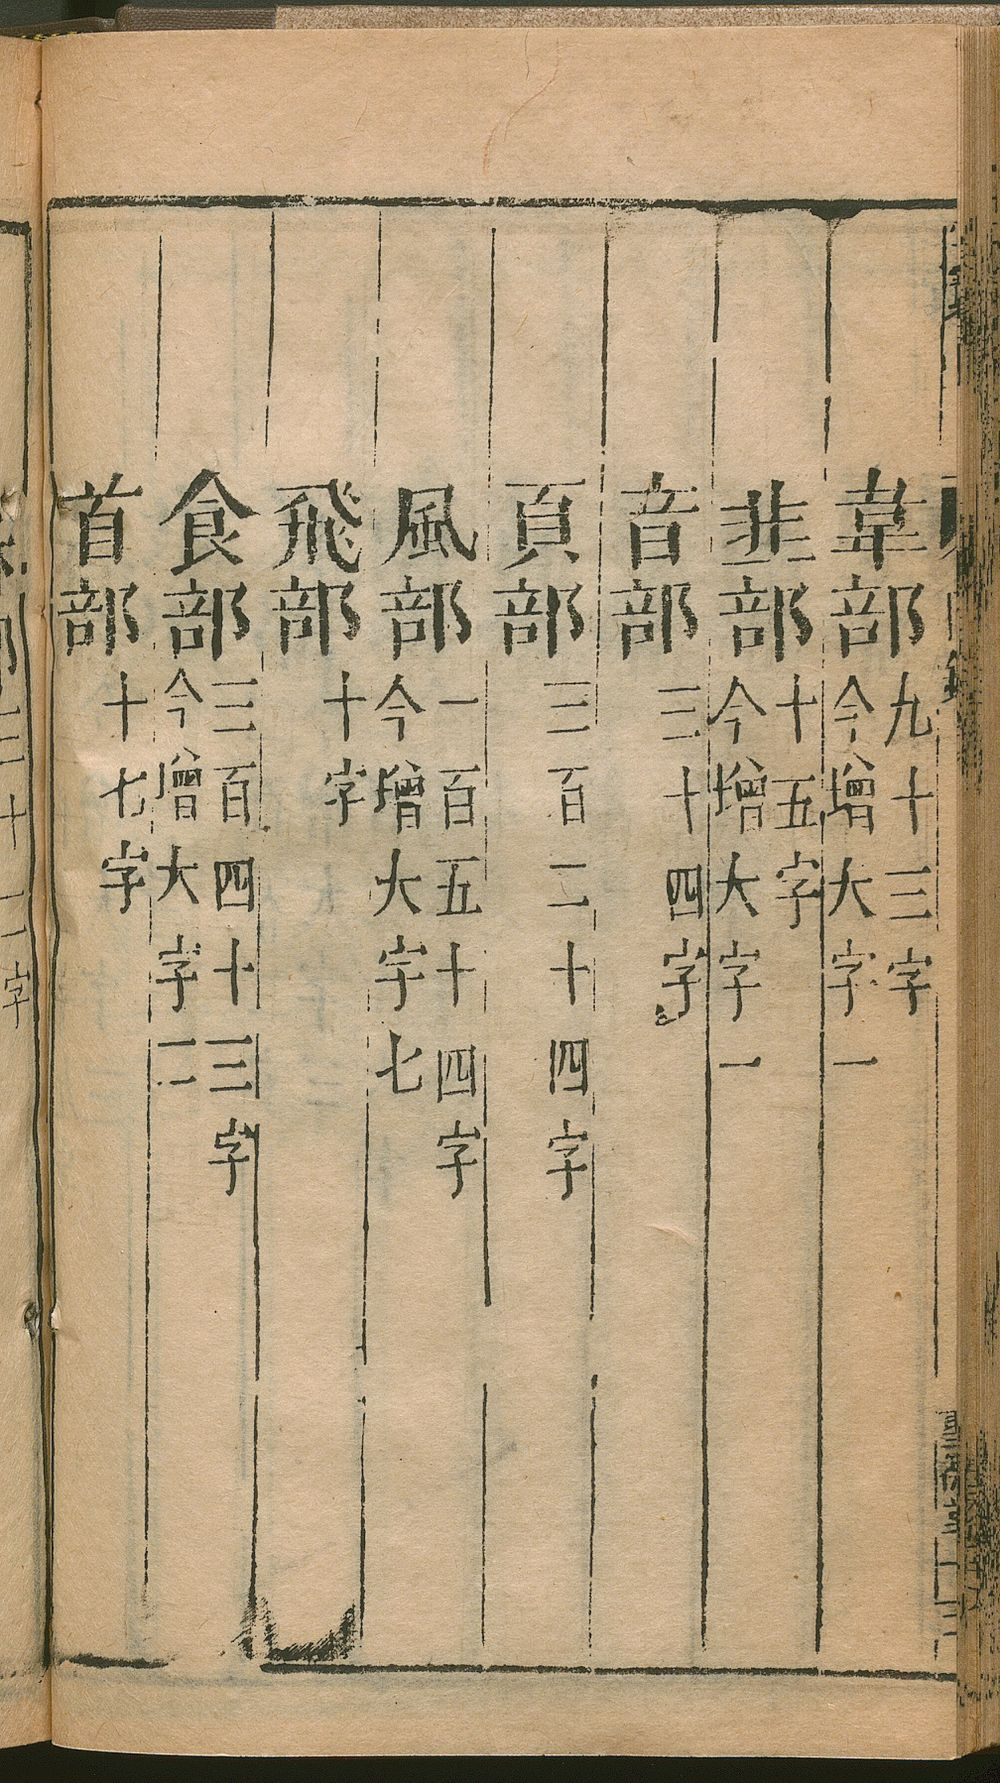 韋部九十三字
今增大字一
韭部十五字
今增大字一
音部三十四字
頁部三百二十四字
風部一百五十四字
今增大字七
飛部十字
食部三百四十三字
今增大字二
首部十七字